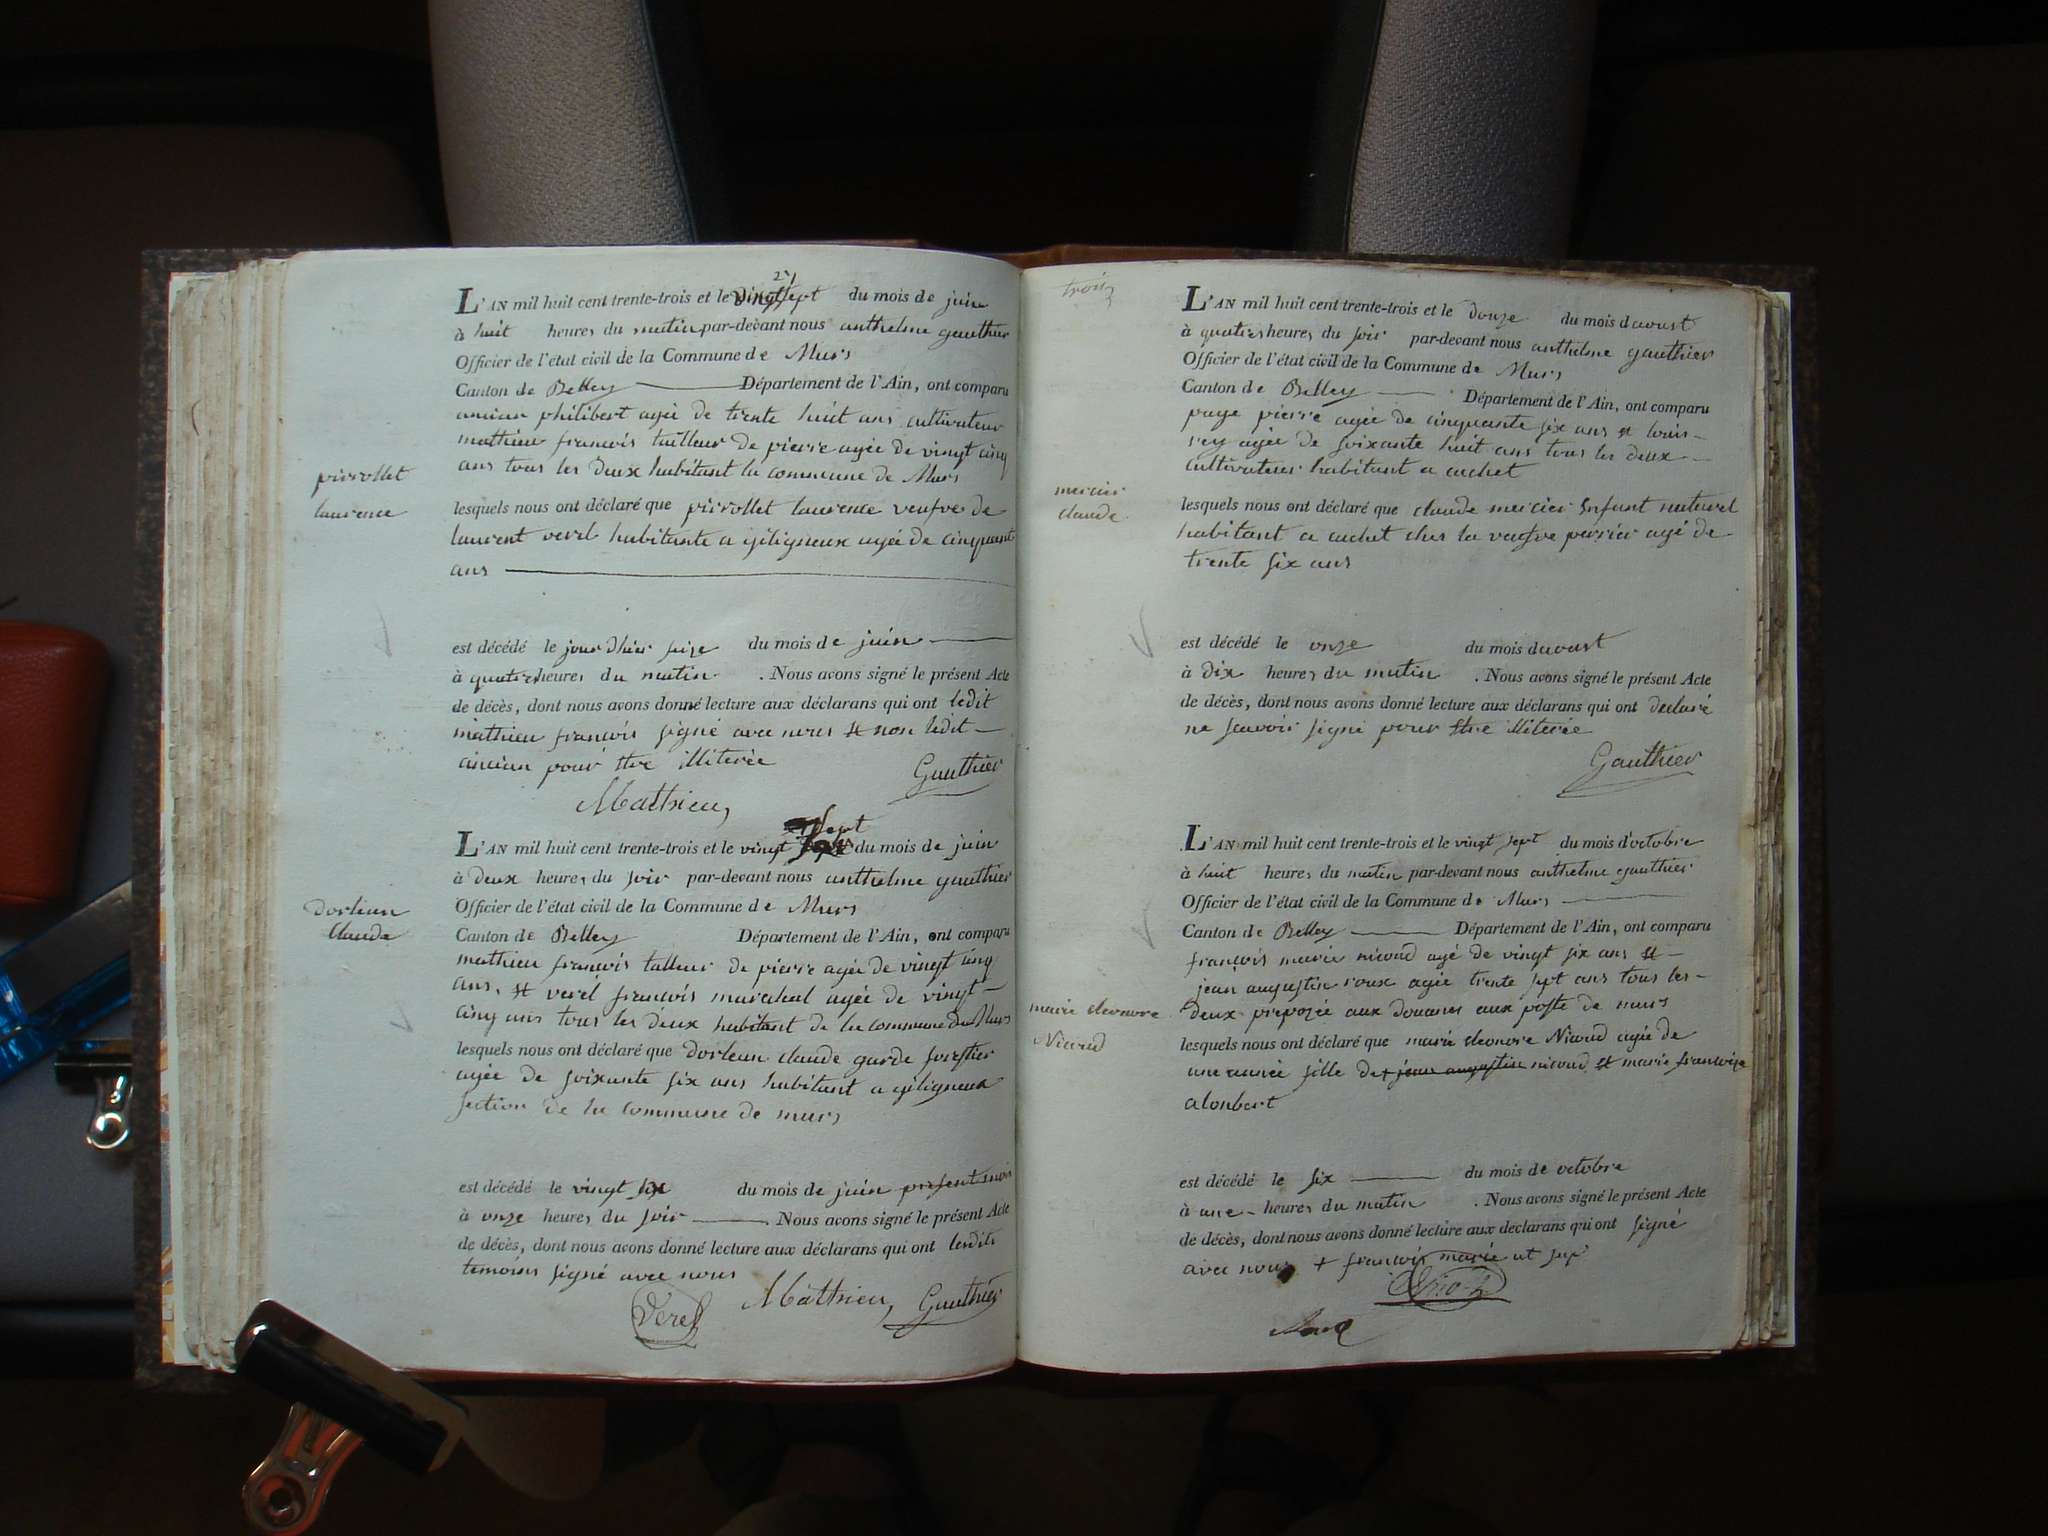 pirrollet
laurence
L'AN mil huit cent trente-trois et le vingt sept du mois de juin
à huit heures du matin par-devant nous anthelme gauthier
Officier de l'état civil de la Commune de Murs
Canton de Belley Département de l'Ain, ont comparu
ancian philibert agée de trente huit ans cultivateur
mathieu francois tailleur de pierre agée de vingt cinq
ans tous les deux habitant la commune de Murs
lesquels nous ont déclaré que pirrollet laurence veufve de
laurent verel habitante a gilignieux agée de cinquant
ans
est décédé le jour dhier seize du mois de juin
à quatre heures du matin . Nous avons signé le présent Acte
de décès, dont nous avons donné lecture aux déclarans qui ont ledit
mathieu francois signé avec nous et non ledit
ancian pour être illiterée
Gauthier
Mathieu,
dorlean
claude
L'AN mil huit cent trente-trois et le vingt sept du mois de juin
à deux heures du soir par-devant nous anthelme gauthier
Officier de l'état civil de la Commune de Murs
Canton de Belley Département de l'Ain, ont comparu
mathieu francois talleur de pierre agée de vingt cinq
ans, et verel francois marechal agée de vingt
cinq ans tous les deux habitant de la commune de Murs
lesquels nous ont déclaré que dorlean claude garde forestier
agée de soixante six ans habitant a gilignieux
section de la commune de murs
est décédé le vingt six du mois de juin present mois
à onze heures du soir Nous avons signé le présent Acte
de décès, dont nous avons donné lecture aux déclarans qui ont lesdits
temoins signé avec nous
Verel Mathieu, Gauthier
trois
mercier
claude
L'AN mil huit cent trente-trois et le douze du mois daoust
à quatres heures du soir par-devant nous anthelme gauthier
Officier de l'état civil de la Commune de Murs
Canton de Belley Département de l'Ain, ont comparu
page pierre agée de cinquante six ans et louis
rey agée de soixante huit ans tous les deux
cultivateurs habitant a cuchet
lesquels nous ont déclaré que claude mercier enfant naturel
habitant a cuchet ches la veufve perrier agé de
trente six ans
est décédé le onze du mois daoust
à dix heures du matin . Nous avons signé le présent Acte
de décès, dont nous avons donné lecture aux déclarans qui ont declaré
ne scavoir signé pour être illiterée
Gauthier
marie eleonore
Nicoud
L'AN mil huit cent trente-trois et le vingt sept du mois d'octobre
à huit heures du matin par-devant nous anthelme gauthier
Officier de l'état civil de la Commune de Murs
Canton de Belley Département de l'Ain, ont comparu
francois marie nicoud agé de vingt six ans et
jean augustin roux agée trente sept ans tous les
deux preposée aux douanes aux poste de murs
lesquels nous ont déclaré que marie eleonore Nicoud agée de
une année fille de + jean augustin nicoud et marie francoise
alonbert
est décédé le six du mois de octobre
à une heures du matin . Nous avons signé le présent Acte
de décès, dont nous avons donné lecture aux déclarans qui ont signé
avec nous + francois marie